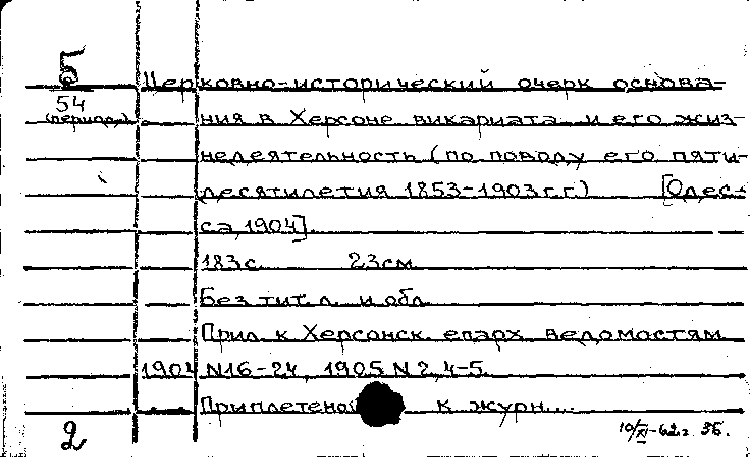 Б
54
(период.)
Церковно-исторический очерк основа-
ния в Херсоне викариата и его жиз-
недеятельность (по поводу его пяти-
десятилетия 1853-1903 г.г.) [Одес-
са, 1904].
183 с. 23 см.
Без тит. л. и обл.
Прил. к Херсонск. епарх. ведомостям
1904 N16-24, 1905 N 2,4-5.
Приплетено к журн...
2
10/XI-62г.